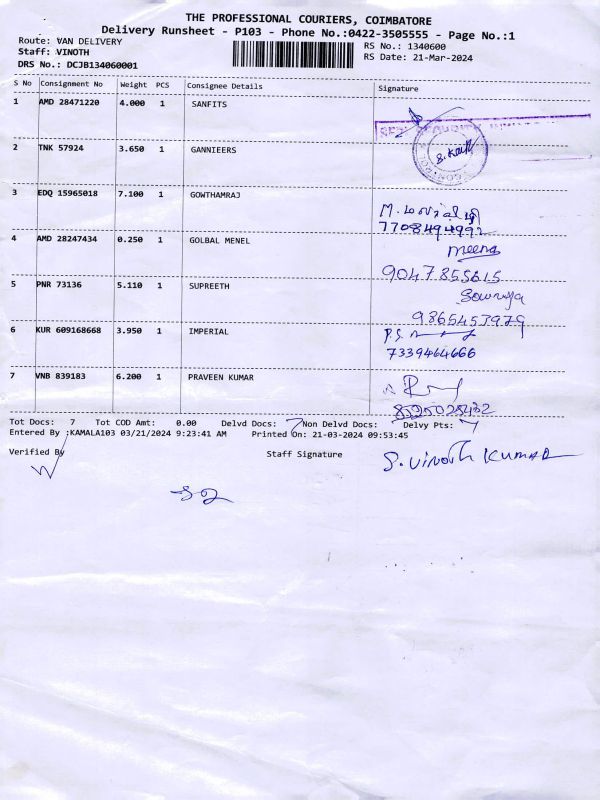 THE PROFESSIONAL COURIERS, COIMBATORE
Delivery Runsheet - P103 - Phone No.:0422-3505555 - Page No.:1
Route: VAN DELIVERY
RS No.: 1340600
Staff: VINOTH
RS Date: 21-Mar-2024
DRS No.: DCJB134060001
S No Consignment No Weight PCS Consignee Details Signature
1 AMD 28471220 4.000 1 SANFITS
2 TNK 57924 3.650 1 GANNIEERS
3 EDQ 15965018 7.100 1 GOWTHAMRAJ
7708494992
4 AMD 28247434 0.250 1 GOLBAL MENEL
meena
9047855615
5 PNR 73136 5.110 1 SUPREETH
Sowmya
9865453979
6 KUR 609168668 3.950 1 IMPERIAL
7339464666
7 VNB 839183 6.200 1 PRAVEEN KUMAR
8525025432
Tot Docs: 7 Tot COD Amt: 0.00 Delvd Docs: 7 Non Delvd Docs: Delvy Pts: 7
Entered By :KAMALA103 03/21/2024 9:23:41 AM Printed On: 21-03-2024 09:53:45
Verified By Staff Signature S. VINOTH KUMAR